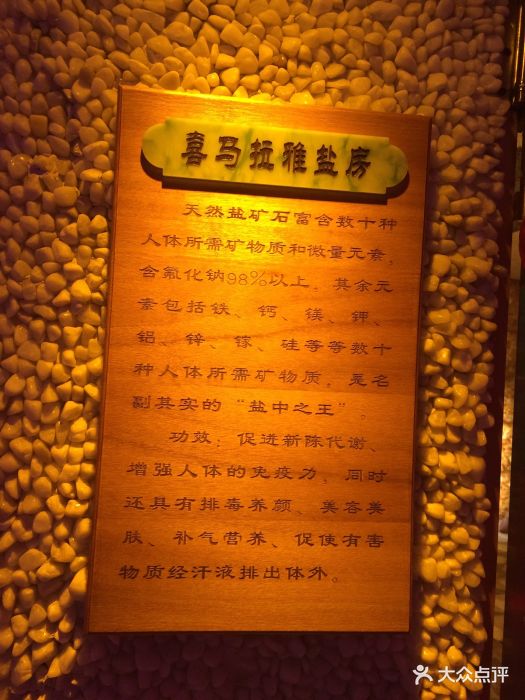 喜马拉雅盐房
天然盐矿石富含数十种
人体所需矿物质和微量元素，
含氟化钠98%以上，其余元
素包括铁、钙、镁、钾、
铝、锌、镓、硅等等数十
种人体所需矿物质，是名
副其实的“盐中之王”。
功效：促进新陈代谢、
增强人体的免疫力，同时
还具有排毒养颜、美容美
肤、补气营养、促使有害
物质经汗液排出体外。
大众点评